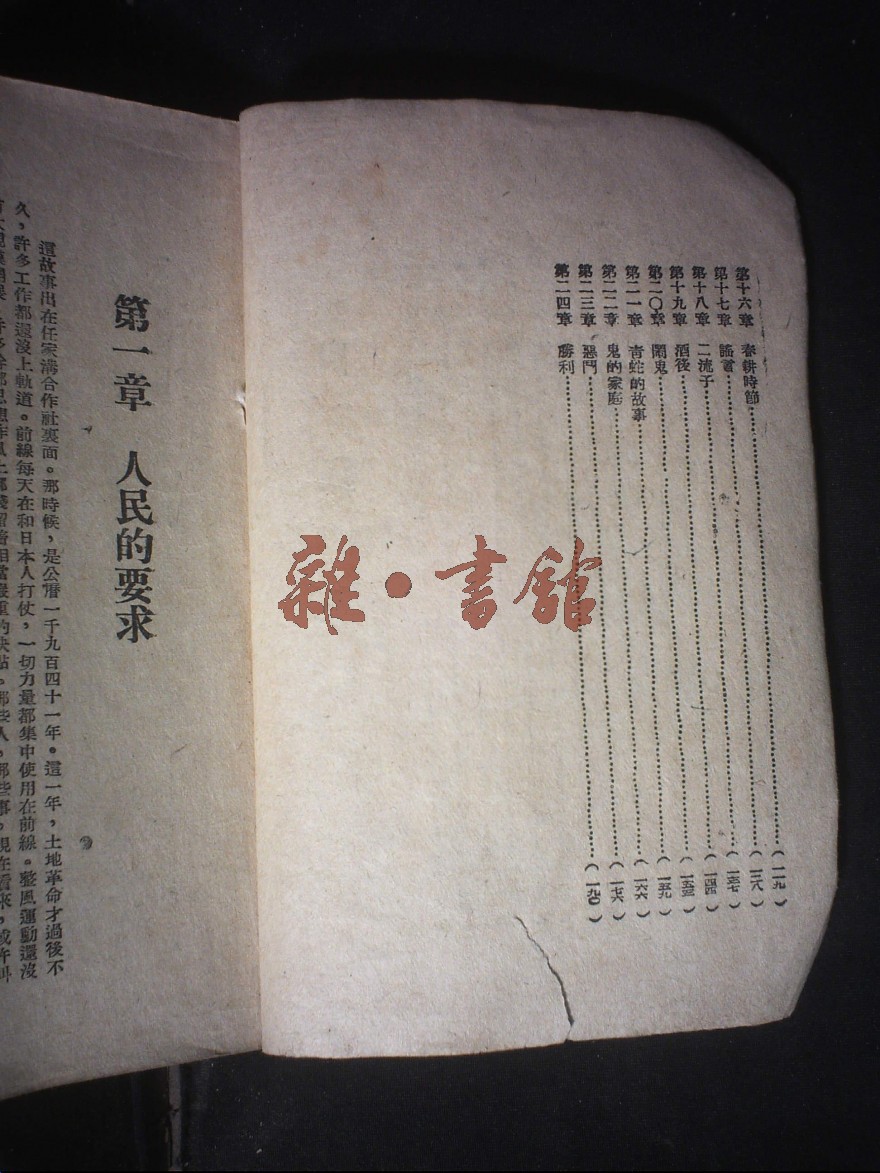 第十六章 春耕時節……（一一九）
第十七章 謠言……（一二八）
第十八章 二流子……（一三七）
第十九章 酒後……（一四四）
第二〇章 鬧鬼……（一五三）
第二一章 青蛇的故事……（一五九）
第二二章 鬼的家庭……（一六六）
第二三章 惡鬥……（一七六）
第二四章 勝利……（一九〇）
雜·書館
第一章 人民的要求
這故事出在任家溝合作社裏面。那時候，是公曆一千九百四十一年。這一年，土地革命才過後不
久，許多工作都還沒上軌道。前線每天在和日本人打仗，一切力量都集中使用在前線。整風運動還沒
思想作風上都殘留着相當嚴重的缺點。那些人，那些事，現在看來，或許叫